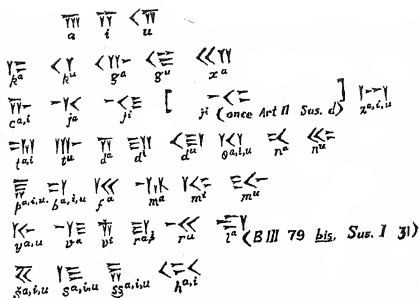 𐎠 𐎡 𐎢
a i u
𐎣 𐎤 𐎥 𐎦 𐎧
kᵃ kᵘ gᵃ gᵘ xᵃ
𐎨 𐎩 𐎪 [ 𐎪 ] 𐏀
cᵃ,ⁱ jᵃ jⁱ jⁱ (once Art II Sus. d) zᵃ,ⁱ,ᵘ
𐎫 𐎬 𐎭 𐎮 𐎯 𐎰 𐎴 𐎵
tᵃ,ⁱ tᵘ dᵃ dⁱ dᵘ θᵃ,ⁱ,ᵘ nᵃ nᵘ
𐎱 𐎲 𐎳 𐎶 𐎷 𐎸
pᵃ,ⁱ,ᵘ. bᵃ,ⁱ,ᵘ fᵃ mᵃ mⁱ mᵘ
𐎹 𐎺 𐎻 𐎼 𐎽 𐎾
yᵃ,ᵘ vᵃ vⁱ rᵃ,ⁱ rᵘ lᵃ (B III 79 bis, Sus. I 31)
𐏁 𐎿 𐏂 𐏃
šᵃ,ⁱ,ᵘ sᵃ,ⁱ,ᵘ šsᵃ,ⁱ,ᵘ hᵃ,ⁱ